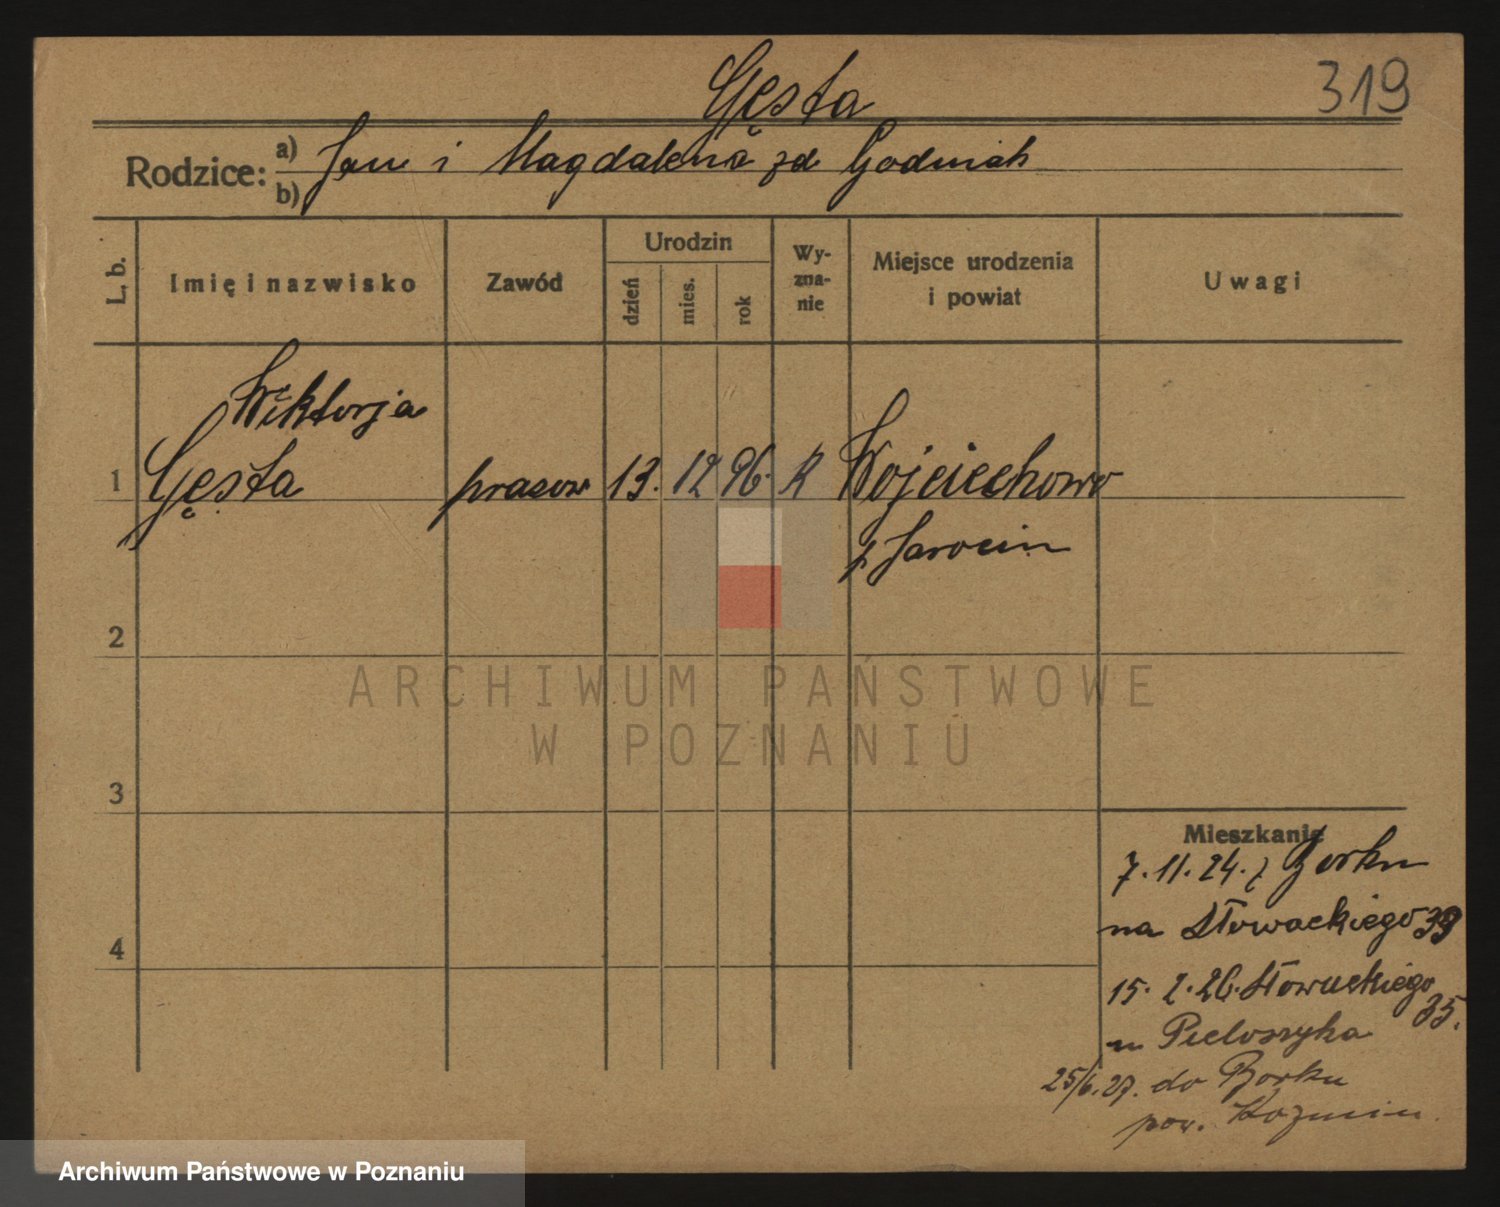 Gęsta
319
Rodzice: a) Jan i Magdalena zd Godniak
b)
L. b.
Imię i nazwisko
Zawód
Urodzin
dzień
mies.
rok
Wy-
zna-
nie
Miejsce urodzenia
i powiat
Uwagi
Wiktorja
1 Gęsta prasow 13. 12 96. R Wojciechowo
p Jarocin
2
ARCHIWUM PAŃSTWOWE
W POZNANIU
3
Mieszkanie
7.11.24. z Borku
na Słowackiego 39
4
15. 2. 26. Słowackiego
35.
u
25/6.27. do Borku
pow. Kozmin.
Archiwum Państwowe w Poznaniu